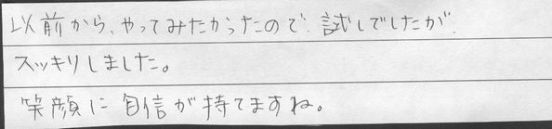 以前から、やってみたかったので、試しでしたが、
スッキリしました。
笑顔に自信が持てますね。